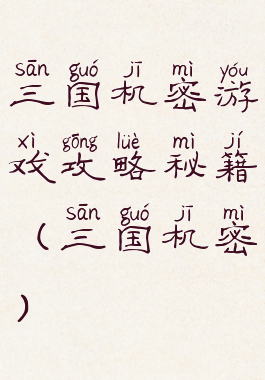 sān guó jī mì yóu
三国机密游
xì gōng lüè mì jí
戏攻略秘籍
sān guó jī mì
(三国机密
)